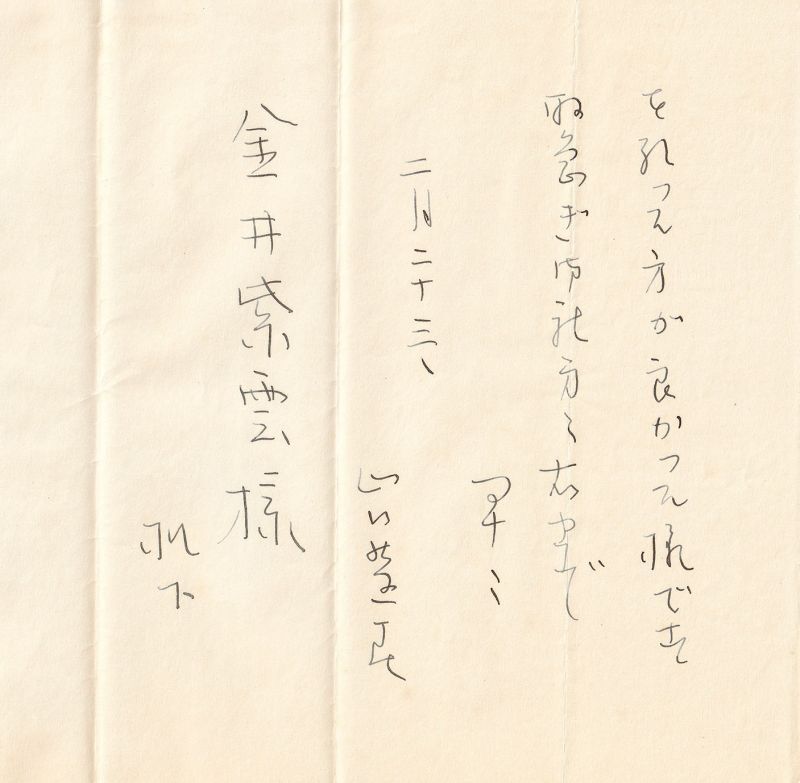 つた方が良かつた様です
取急ぎ御礼方々右まで
早々
二月二十三日
山口蓬春
金井紫雲様
机下